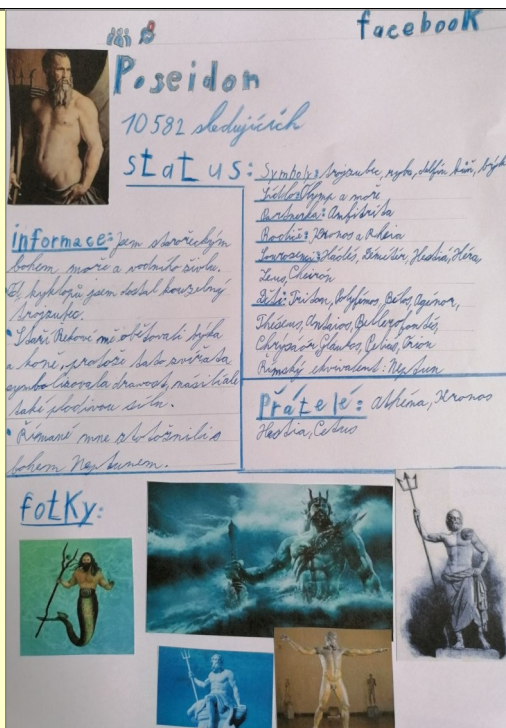 facebook
Poseidon
10 582 sledujících
status: Symboly: trojzubec, ryba, delfín, kůň, býk
Sídlo: Olymp a moře
Partnerka: Amfitrita
Rodiče: Kronos a Rheia
Sourozenci: Hádés, Démétér, Hestia, Héra,
Zeus, Cheirón
Děti: Triton, Polyfémos, Bélos, Agénor,
Théseus, Antaios, Bellerofontés,
Chrýsáór, Glaukos, Pelias, Orion
Římský ekvivalent: Neptun
informace: Jsem starořeckým
bohem moře a vodního živlu.
• Od kyklopů jsem dostal kouzelný
trojzubec.
• Staří Řekové mě obětovali býka
a koně, protože tato zvířata
symbolizovala dravost, násilí ale
také plodivou sílu.
• Římané mne ztotožnili s
bohem Neptunem.
Přátelé: Athéna, Kronos
Hestia, Cetus
fotky: